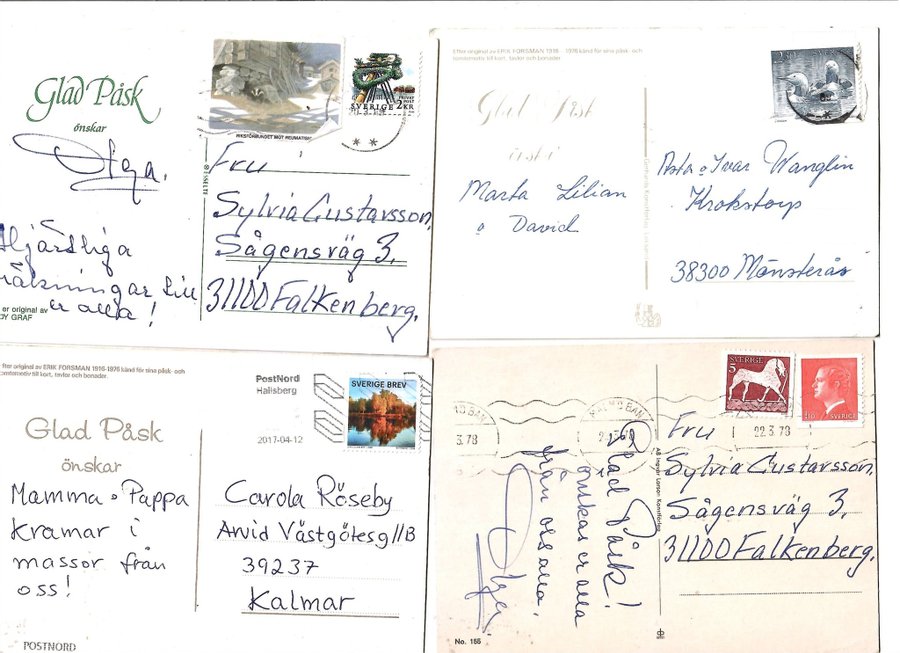 Glad Påsk
önskar
Olga.
Hjärtliga
hälsningar till
er alla!
er original av
DY GRAF
RIKSFÖRBUNDET MOT REUMATISM
SVERIGE 2KR
ESSELTE
Fru
Sylvia Gustavsson,
Sågensväg 3,
31100 Falkenberg.
Efter original av ERIK FORSMAN 1916 - 1976 känd för sina påsk- och
tomtemotiv till kort, tavlor och bonader.
Glad Påsk
önskar
Marta Lilian
o David
Asta o Ivar Wanglin
Krokstorp
38300 Mönsterås
Efter original av ERIK FORSMAN 1916-1976 känd för sina påsk- och
tomtemotiv till kort, tavlor och bonader.
Glad Påsk
önskar
Mamma o Pappa
Kramar i
massor från
oss!
POSTNORD
PostNord
Hallsberg
2017-04-12
SVERIGE BREV
Carola Röseby
Arvid Västgötesg 11B
39237
Kalmar
Glad Påsk!
önskar er alla
från oss alla.
Olga
No. 155
SVERIGE
5
SVERIGE
22.3.78
Fru
Sylvia Gustavsson,
Sågensväg 3,
31100 Falkenberg.